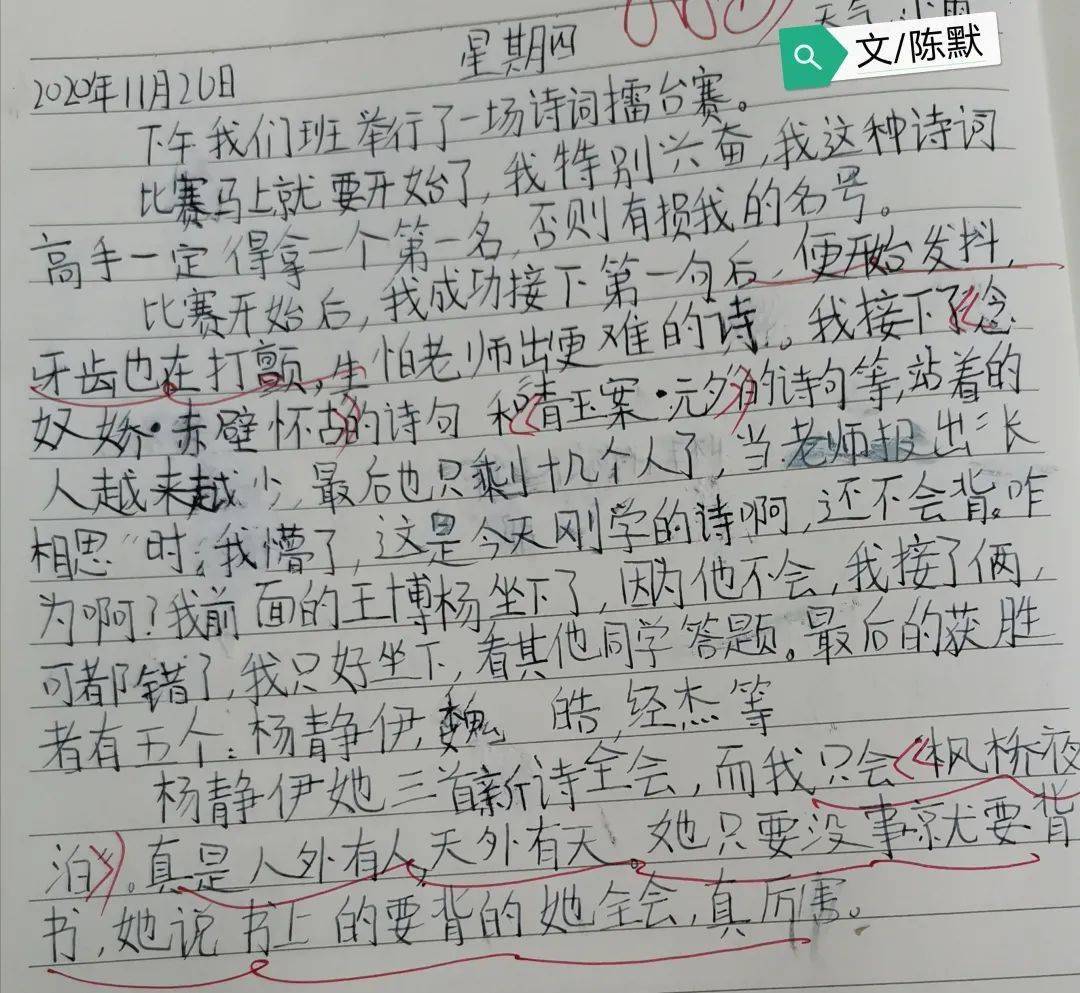 星期四 天气：小雨
文/陈默
2020年11月26日
下午我们班举行了一场诗词擂台赛。
比赛马上就要开始了，我特别兴奋，我这种诗词
高手一定得拿一个第一名，否则有损我的名号。
比赛开始后，我成功接下第一句后，便开始发抖，
牙齿也在打颤，生怕老师出更难的诗。我接下了《念
奴娇·赤壁怀古》的诗句和《青玉案·元夕》的诗句等，站着的
人越来越少，最后也只剩十几个人了，当老师报出“长
相思”时，我懵了，这是今天刚学的诗啊，还不会背。咋
为啊？我前面的王博杨坐下了，因为他不会，我接了俩，
可都错了，我只好坐下，看其他同学答题。最后的获胜
者有五个：杨静伊，魏 皓，经杰等
杨静伊她三首新诗全会，而我只会《枫桥夜
泊》。真是人外有人，天外有天。她只要没事就要背
书，她说书上的要背的她全会，真厉害。